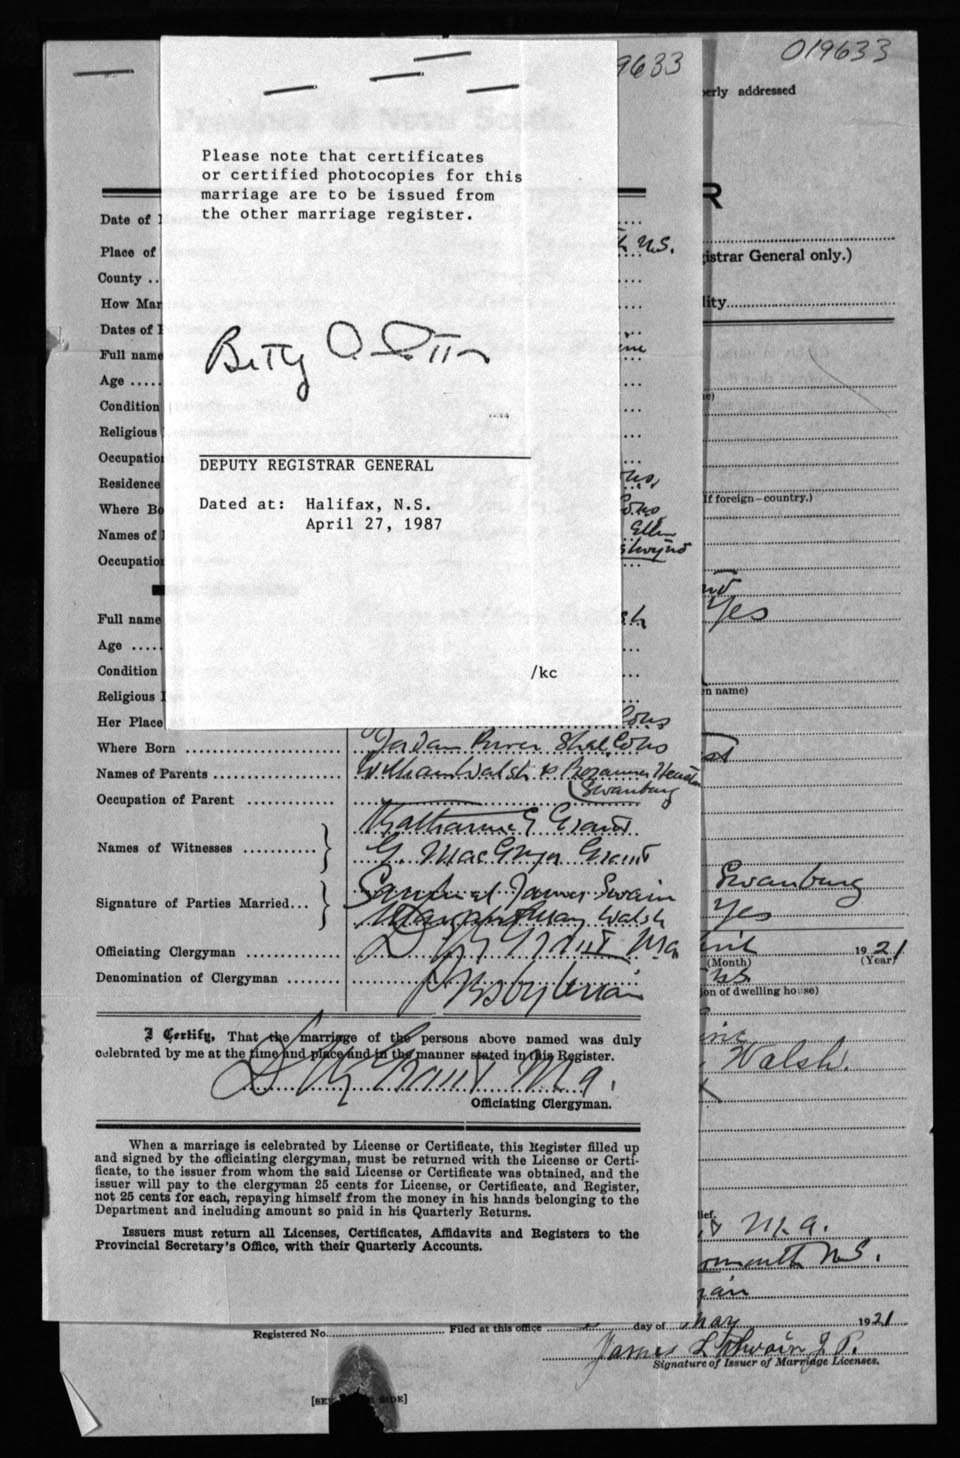 019633
9633
erly addressed
Province of Nova Scotia.
Please note that certificates
or certified photocopies for this
marriage are to be issued from
the other marriage register.
R
Date of
Place of
N.S.
istrar General only.)
County ..
How Mar
lity
Dates of
Full name
Betty
Age ....
Condition
Religious
Occupatio
DEPUTY REGISTRAR GENERAL
Residence
If foreign-country.)
Dated at: Halifax, N.S.
April 27, 1987
Where Bo
Names of
Ellen
Occupatio
Full name
Yes
Age ....
Condition
/kc
n name)
Religious
Her Place
Where Born
Jordan River Shel. Co NS
Names of Parents
William Walsh &
Swanburg
Occupation of Parent
Names of Witnesses
Katharine E Grant
G. MacGregor Grant
Signature of Parties Married...
Samuel James Swain
May Walsh
Swanburg
Yes
Officiating Clergyman
Grant M.A.
1921
(Month)
(Year)
Denomination of Clergyman
Presbyterian
on of dwelling house)
I Certify, That the marriage of the persons above named was duly
celebrated by me at the time and place and in the manner stated in this Register.
Walsh.
Grant M.A.
Officiating Clergyman.
When a marriage is celebrated by License or Certificate, this Register filled up
and signed by the officiating clergyman, must be returned with the License or Certi-
ficate, to the issuer from whom the said License or Certificate was obtained, and the
issuer will pay to the clergyman 25 cents for License, or Certificate, and Register,
not 25 cents for each, repaying himself from the money in his hands belonging to the
Department and including amount so paid in his Quarterly Returns.
lief.
M.A.
Issuers must return all Licenses, Certificates, Affidavits and Registers to the
Provincial Secretary's Office, with their Quarterly Accounts.
rmouth N.S.
ian
Registered No. Filed at this office day of May 1921
James
J.P.
Signature of Issuer of Marriage Licenses.
[SEE SIDE]